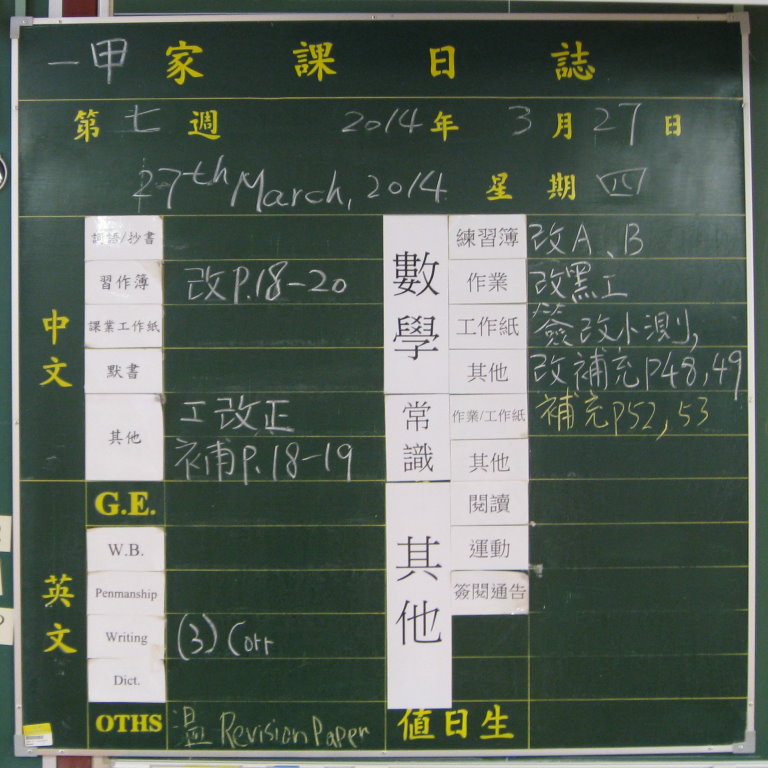 一甲家課日誌
第七週 2014年3月27日
27th March, 2014 星期四
中文
詞語/抄書
習作簿 改P.18-20
課業工作紙
默書
其他 工改正
補P.18-19
英文
G.E.
W.B.
Penmanship
Writing (3) Corr
Dict.
OTHS 溫 Revision Paper
數學
練習簿 改A、B
作業 改黑工
工作紙 簽改小測,
其他 改補充P48,49
常識
作業/工作紙 補充P52,53
其他
其他
閱讀
運動
簽閱通告
值日生